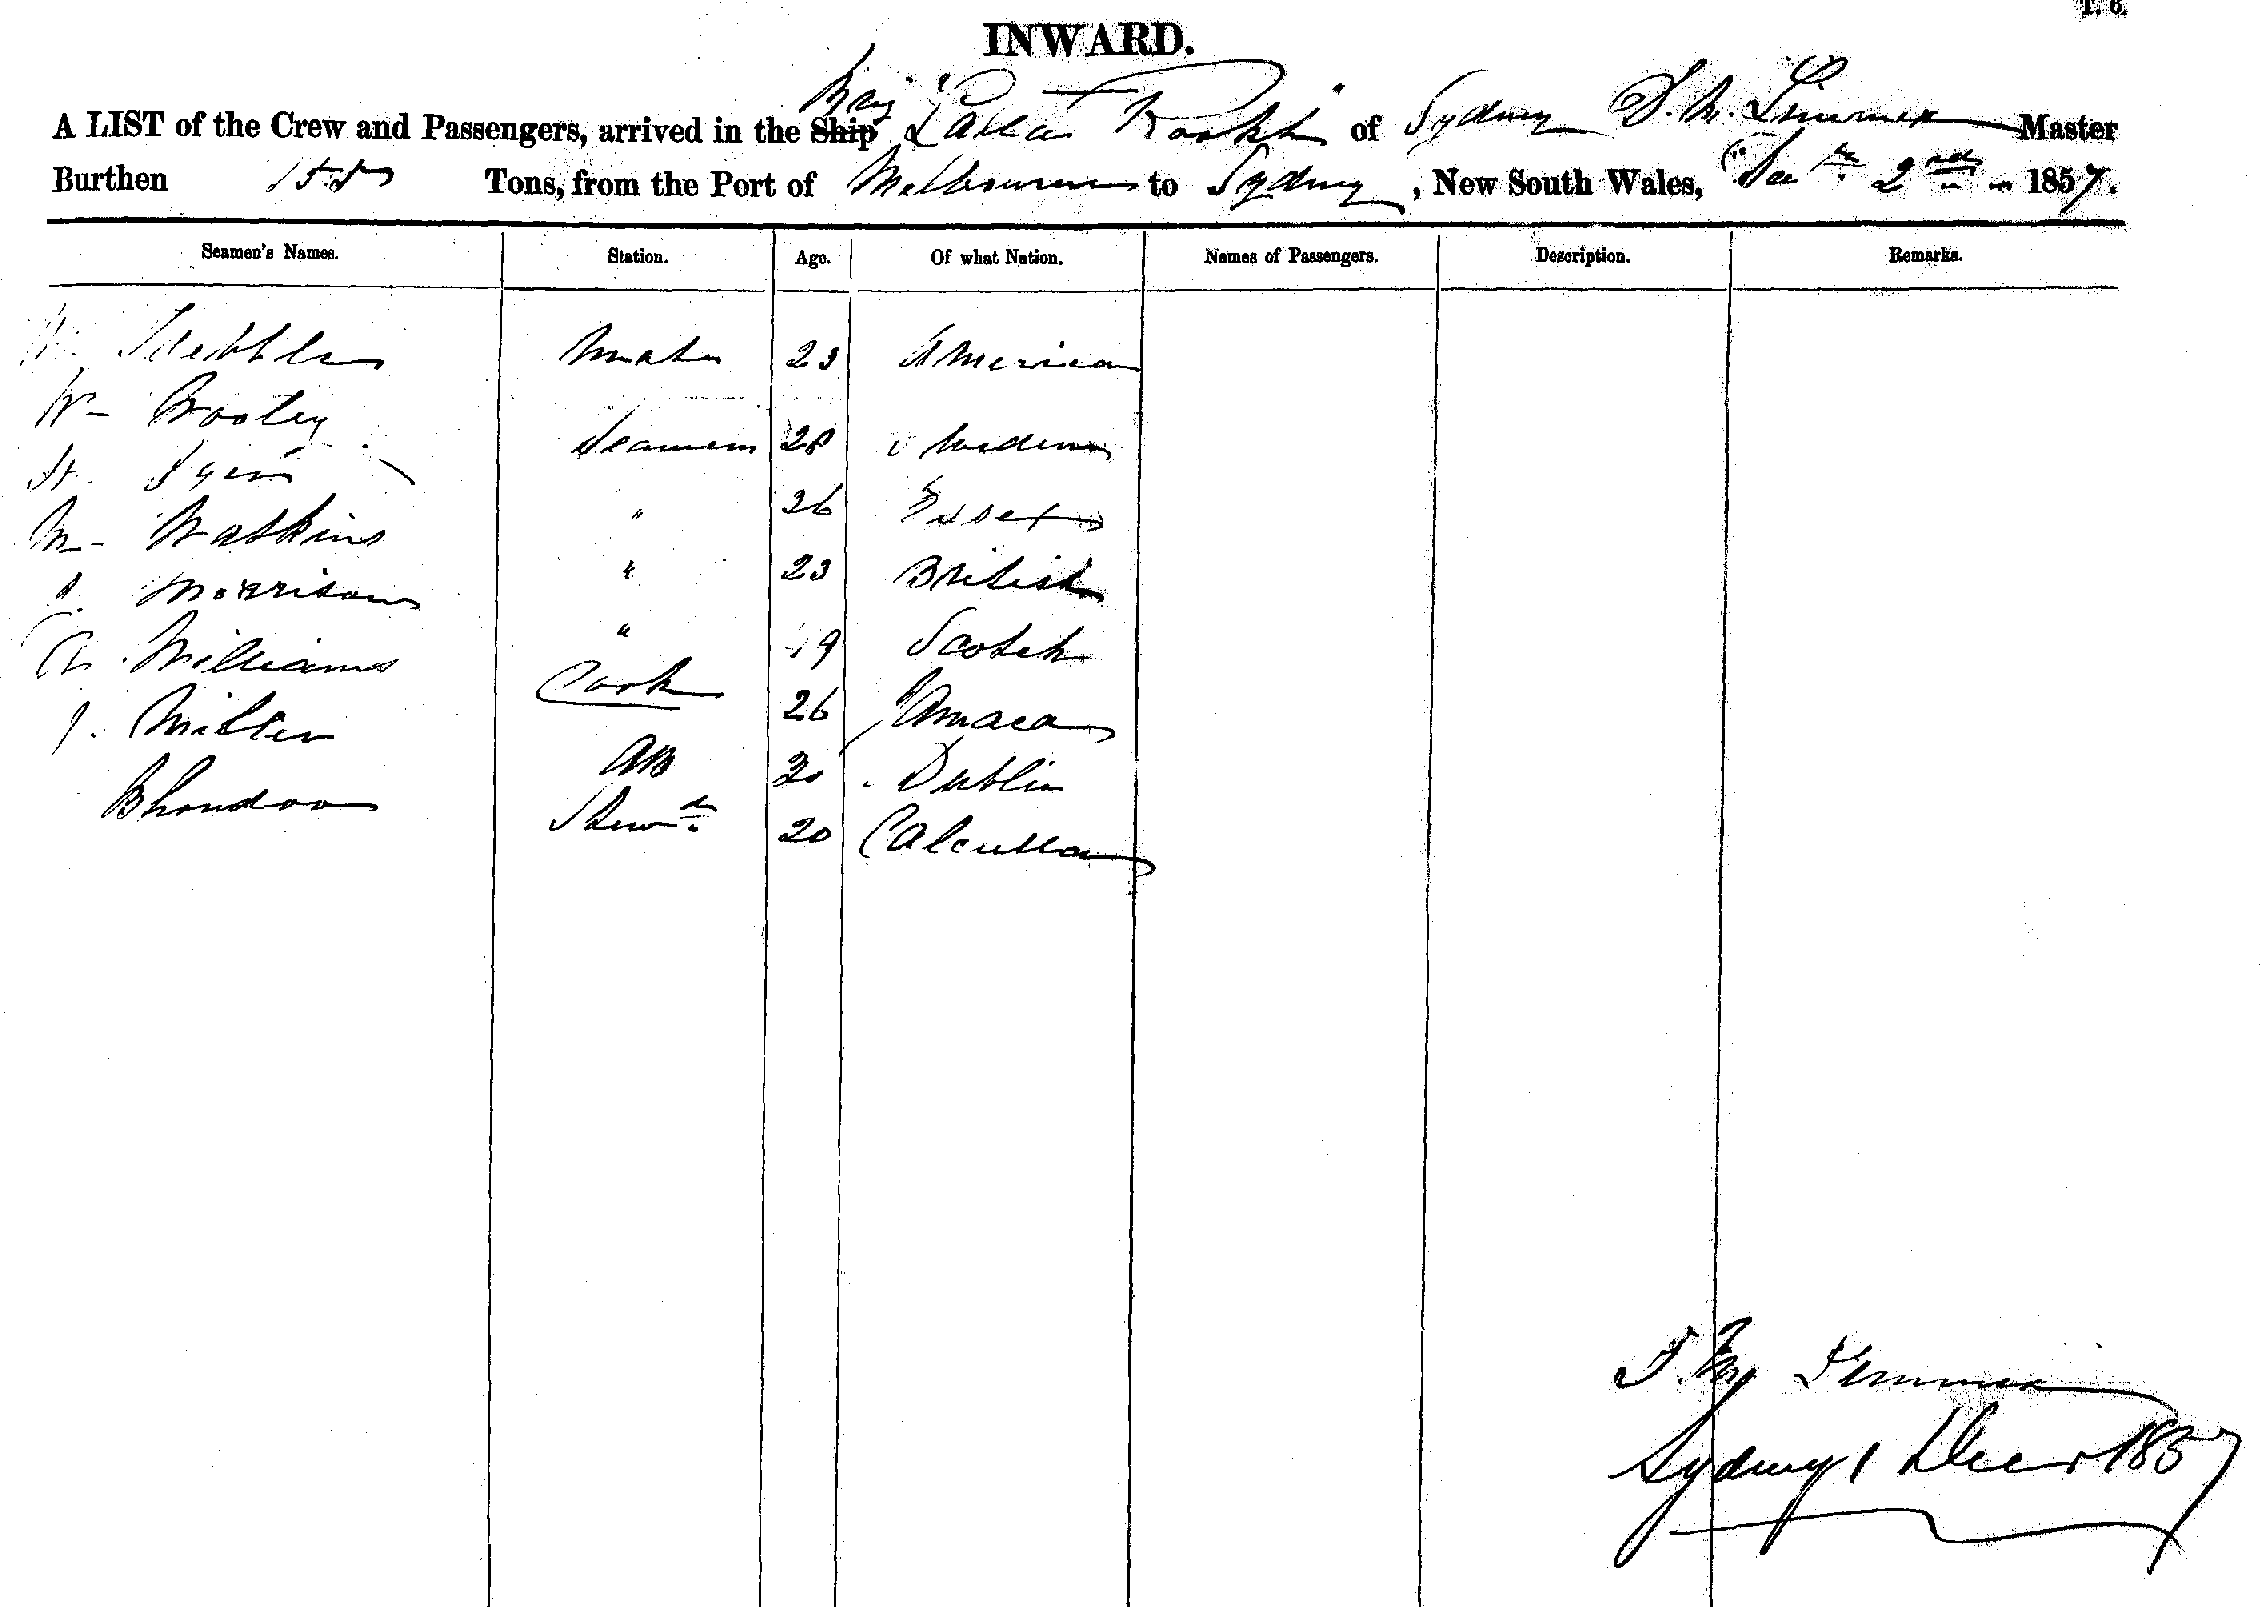 INWARD.
A LIST of the Crew and Passengers, arrived in the Ship Brig "Lalla Rookh" of Sydney Master
Burthen Tons, from the Port of Melbourne to Sydney, New South Wales, 2nd 1857.
Seamen's Names. Station. Age. Of what Nation. Names of Passengers. Description. Remarks.
Mate 23 America
Wm Wooley Seamen 28 Sweden
26 Essex
Wm Watkins " 23 British
Morrison " 19 Scotch
Williams Cook 26 Jamaca
J. Miller AB 20 Dublin
Bhondoo Stewd 20 Calcutta
Sydney 1 Decr 1857